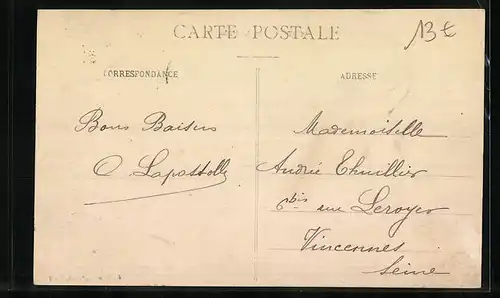 CARTE POSTALE
13€
CORRESPONDANCE
ADRESSE
Bons Baisers
O Lapostolle
Mademoiselle
Andrée Thuillier
6bis rue Leroyer
Vincennes
Seine